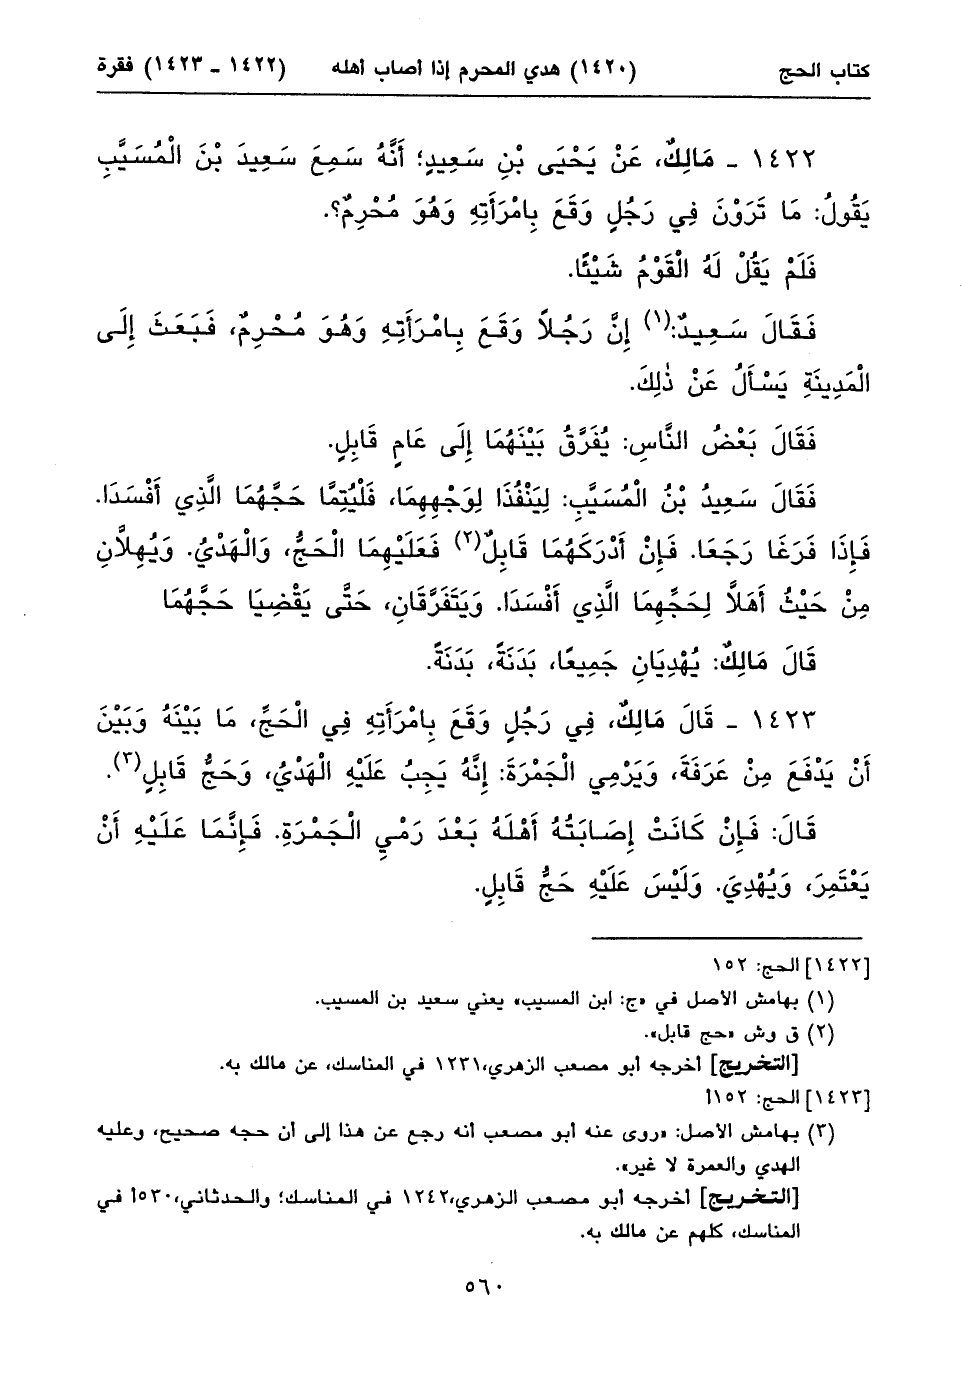 كتاب الحج (١٤٢٠) هدي المحرم إذا أصاب أهله (١٤٢٢ - ١٤٢٣) فقرة
١٤٢٢ - مَالِكٌ، عَنْ يَحْيَى بْنِ سَعِيدٍ؛ أَنَّهُ سَمِعَ سَعِيدَ بْنَ الْمُسَيَّبِ
يَقُولُ: مَا تَرَوْنَ فِي رَجُلٍ وَقَعَ بِامْرَأَتِهِ وَهُوَ مُحْرِمٌ؟.
فَلَمْ يَقُلْ لَهُ الْقَوْمُ شَيْئًا.
فَقَالَ سَعِيدٌ:(١) إِنَّ رَجُلاً وَقَعَ بِامْرَأَتِهِ وَهُوَ مُحْرِمٌ، فَبَعَثَ إِلَى
الْمَدِينَةِ يَسْأَلُ عَنْ ذٰلِكَ.
فَقَالَ بَعْضُ النَّاسِ: يُفَرَّقُ بَيْنَهُمَا إِلَى عَامٍ قَابِلٍ.
فَقَالَ سَعِيدُ بْنُ الْمُسَيَّبِ: لِيَنْفُذَا لِوَجْهِهِمَا، فَلْيُتِمَّا حَجَّهُمَا الَّذِي أَفْسَدَا.
فَإِذَا فَرَغَا رَجَعَا. فَإِنْ أَدْرَكَهُمَا قَابِلٌ(٢) فَعَلَيْهِمَا الْحَجُّ، وَالْهَدْيُ. وَيُهِلاَّنِ
مِنْ حَيْثُ أَهَلاَّ لِحَجِّهِمَا الَّذِي أَفْسَدَا. وَيَتَفَرَّقَانِ، حَتَّى يَقْضِيَا حَجَّهُمَا
قَالَ مَالِكٌ: يُهْدِيَانِ جَمِيعًا، بَدَنَةً، بَدَنَةً.
١٤٢٣ - قَالَ مَالِكٌ، فِي رَجُلٍ وَقَعَ بِامْرَأَتِهِ فِي الْحَجِّ، مَا بَيْنَهُ وَبَيْنَ
أَنْ يَدْفَعَ مِنْ عَرَفَةَ، وَيَرْمِي الْجَمْرَةَ: إِنَّهُ يَجِبُ عَلَيْهِ الْهَدْيُ، وَحَجُّ قَابِلٍ(٣).
قَالَ: فَإِنْ كَانَتْ إِصَابَتُهُ أَهْلَهُ بَعْدَ رَمْيِ الْجَمْرَةِ. فَإِنَّمَا عَلَيْهِ أَنْ
يَعْتَمِرَ، وَيُهْدِيَ. وَلَيْسَ عَلَيْهِ حَجُّ قَابِلٍ.
[١٤٢٢] الحج: ١٥٢
(١) بهامش الأصل في «ج: ابن المسيب» يعني سعيد بن المسيب.
(٢) ق وش «حج قابل».
[التخريج] أخرجه أبو مصعب الزهري،١٢٣١ في المناسك، عن مالك به.
[١٤٢٣] الحج: ١٥٢أ
(٣) بهامش الأصل: «روى عنه أبو مصعب أنه رجع عن هذا إلى أن حجه صحيح، وعليه
الهدي والعمرة لا غير».
[التخريج] أخرجه أبو مصعب الزهري،١٢٤٢ في المناسك؛ والحدثاني،٥٣٠أ في
المناسك، كلهم عن مالك به.
٥٦٠